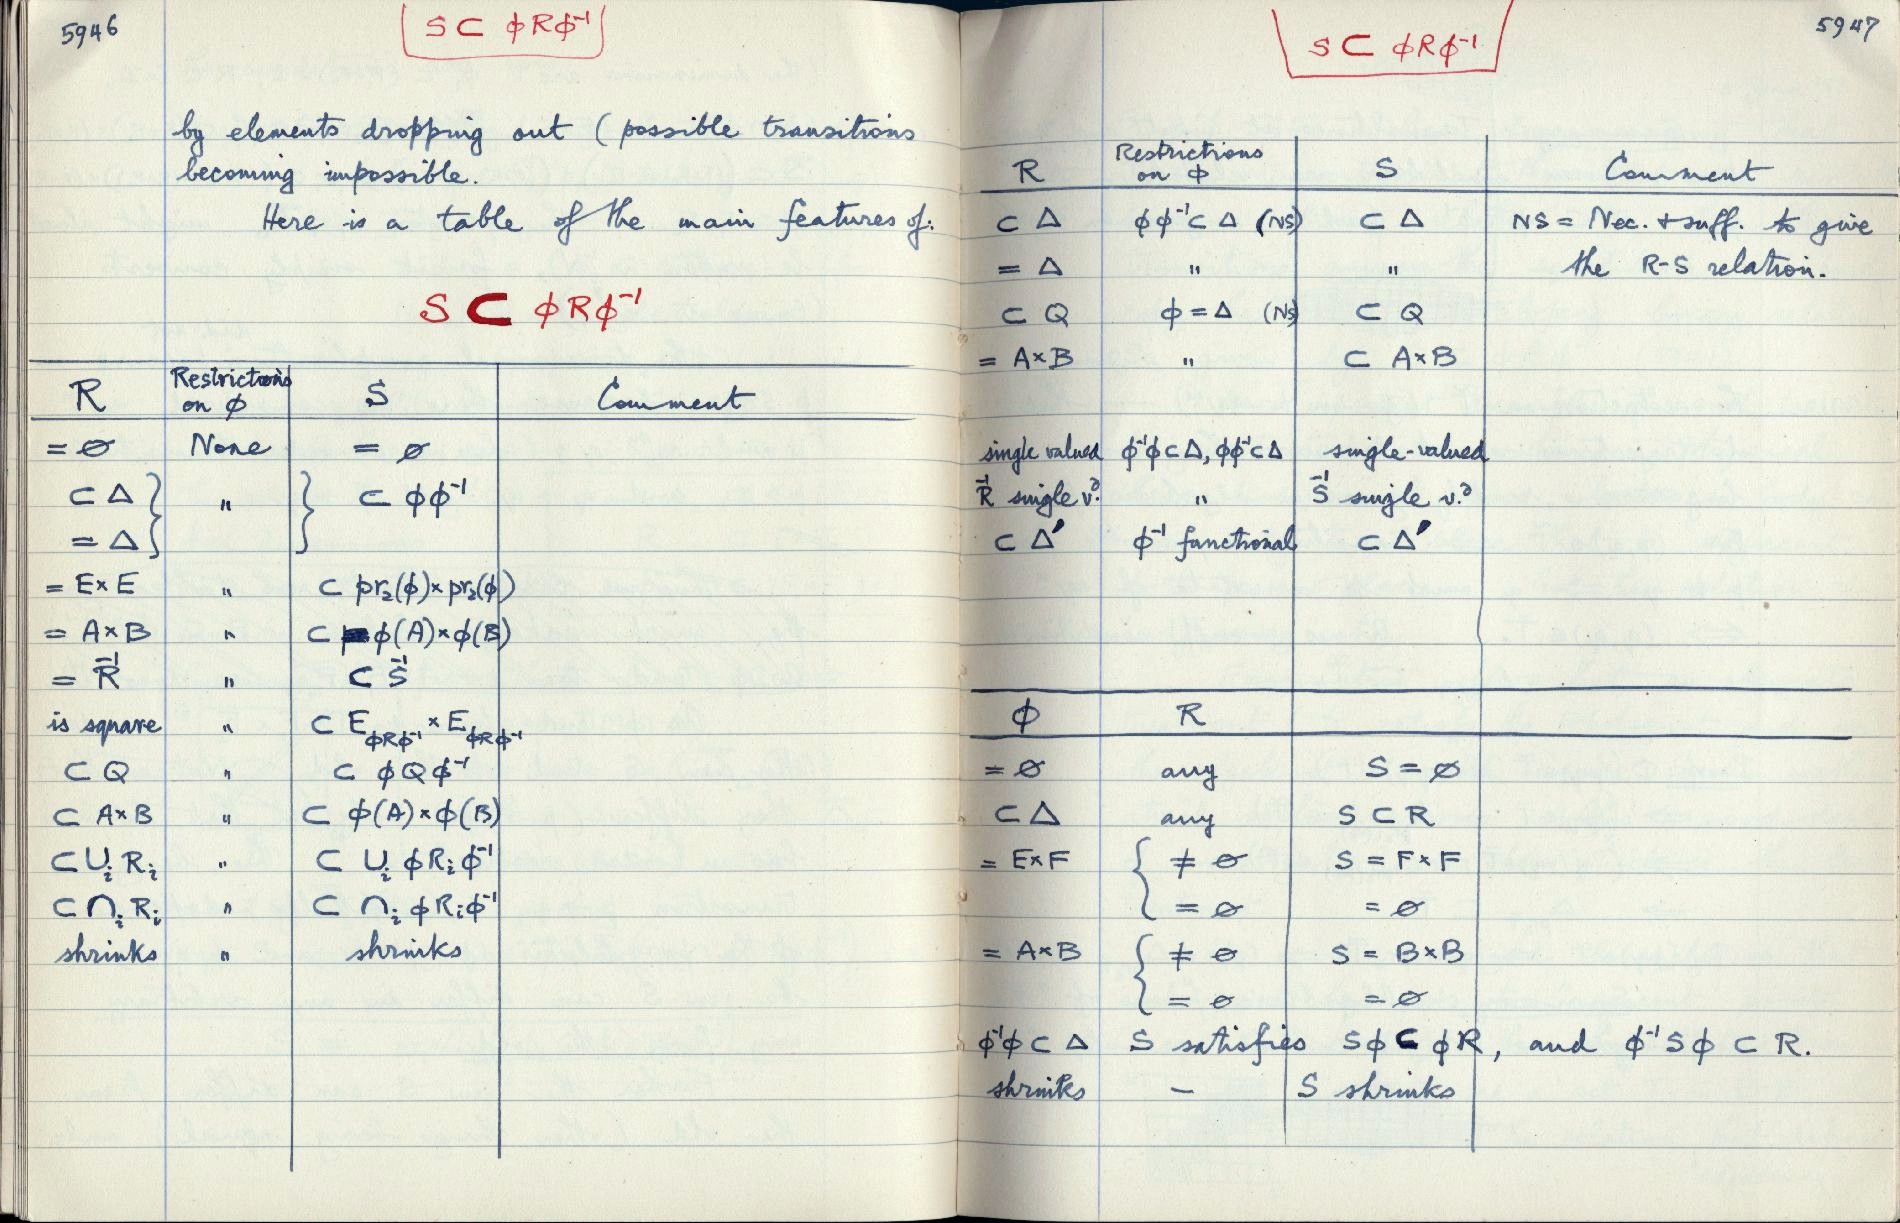 5946
S ⊂ φRφ⁻¹
by elements dropping out (possible transitions
becoming impossible.
Here is a table of the main features of:
S ⊂ φRφ⁻¹
R Restrictions on φ S Comment
= ∅ None = ∅
⊂ Δ } " } ⊂ φφ⁻¹
= Δ
= E×E " ⊂ pr₂(φ)×pr₂(φ)
= A×B " ⊂ φ(A)×φ(B)
= R⁻¹ " ⊂ S⁻¹
is square " ⊂ E_φRφ⁻¹ × E_φRφ⁻¹
⊂ Q " ⊂ φQφ⁻¹
⊂ A×B " ⊂ φ(A)×φ(B)
⊂ ∪ᵢ Rᵢ " ⊂ ∪ᵢ φRᵢφ⁻¹
⊂ ∩ᵢ Rᵢ " ⊂ ∩ᵢ φRᵢφ⁻¹
shrinks " shrinks
5947
S ⊂ φRφ⁻¹
R Restrictions on φ S Comment
⊂ Δ φφ⁻¹ ⊂ Δ (NS) ⊂ Δ NS = Nec. + suff. to give
= Δ " " the R-S relation.
⊂ Q φ = Δ (NS) ⊂ Q
= A×B " ⊂ A×B
single valued φ⁻¹φ ⊂ Δ, φφ⁻¹ ⊂ Δ single-valued
R⁻¹ single v.ᵈ " S⁻¹ single v.ᵈ
⊂ Δ' φ⁻¹ functional ⊂ Δ'
φ R
= ∅ any S = ∅
⊂ Δ any S ⊂ R
= E×F { ≠ ∅ S = F×F
= ∅ = ∅
= A×B { ≠ ∅ S = B×B
= ∅ = ∅
φ⁻¹φ ⊂ Δ S satisfies Sφ ⊂ φR, and φ⁻¹Sφ ⊂ R.
shrinks — S shrinks